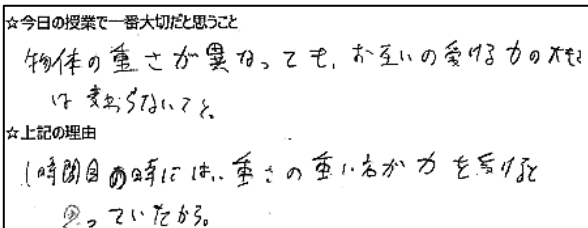 ☆今日の授業で一番大切だと思うこと
物体の重さが異なっても、お互いの受ける力の大きさ
は変わらないこと。
☆上記の理由
1時間目の時には、重さの重い者が力を受けると
思っていたから。